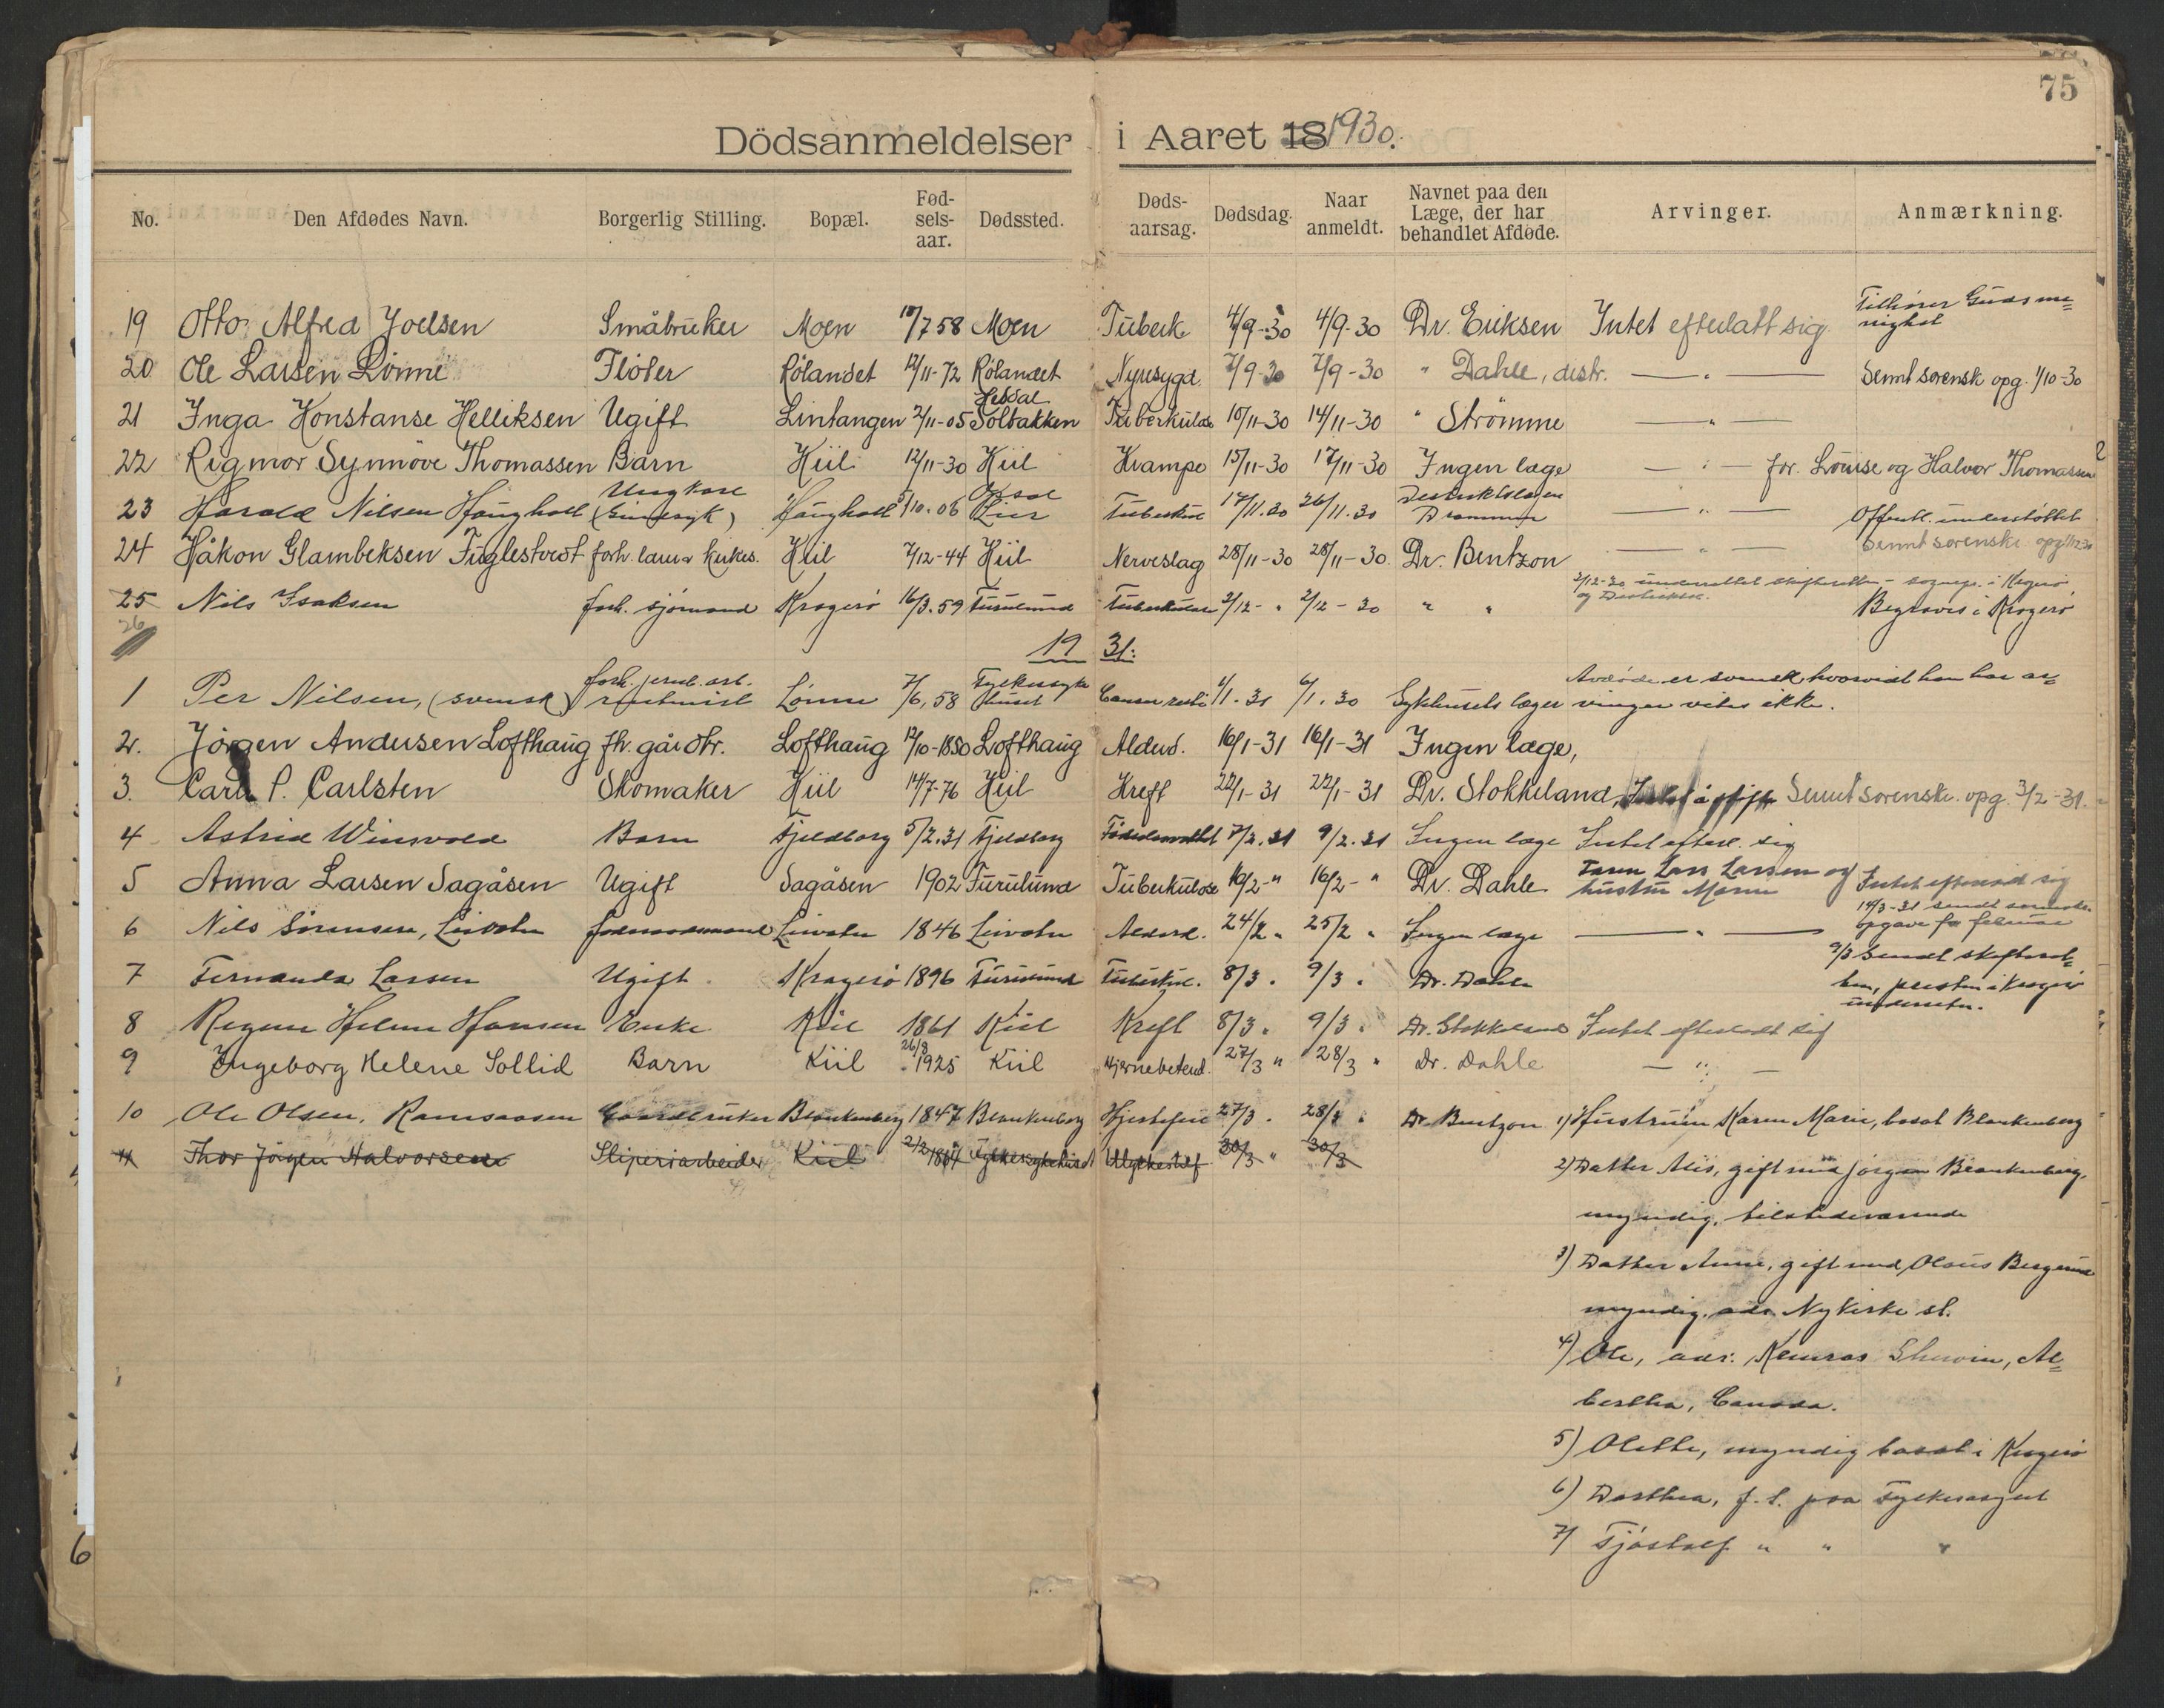 75
Dödsanmeldelser i Aaret 18 1930.
No. Den Afdødes Navn. Borgerlig Stilling. Bopæl. Fødselsaar. Dødssted. Dødsaarsag. Dødsdag. Naar anmeldt. Navnet paa den Læge, der har behandlet Afdøde. Arvinger. Anmærkning.
19 Otto Alfred Joelsen Småbruker Moen 17/7 58 Moen Tuberk. 4/9-30 4/9-30 Dr. Eriksen Intet efterlatt sig. Tilhører Guds me=
nighet
20 Ole Larsen Lønne Fløter Rølandet 12/11-72 Rølandet Nyresygd. 7/9-30 7/9-30 " Dahle, distr. — " — Sennt sorensk opg. 1/10-30
21 Inga Konstanse Helliksen Ugift Lintangen 2/11-05 Heldal Solbakken Tuberkulose 10/11-30 14/11-30 " Strømme — " —
22 Rigmor Synnöve Thomassen Barn Kiil 12/11-30 Kiil Krampe 15/11-30 17/11-30 Ingen læge — " — for. Louise og Halvor Thomassen
23 Harald Nilsen Haugholt Ungkarl (Sinnsyk) Haugholt 5/10.06 Lier Tuberkul 17/11.30 26/11.30 Distriktslægen Drammen — " — Offentl. understöttet
24 Håkon Glambeksen Fuglestvedt forh. lærer kirkes. Kiil 7/12-44 Kiil Nerveslag 28/11-30 28/11-30. Dr. Bentzon — " — Sennt sorenskr. opg 1/12-30
25 Nils Isaksen forh. sjömand Kragerö 16/3.59 Furulund Tuberkulose 2/12- " 2/12-30 " " 2/12-30 underrettet skifteretten - sognepr. i Kragerö,
Begraves i Kragerö
26
19 31:
1 Per Nilsen, (svensk) forh. jernb. arb. Lönne 7/6, 58 Fylkessyke huset Cancer recti 1/1. 31 6/1. 30 Sykehusets læger Avdöde er svensk, hvorvidt han har ar=
vinger vites ikke.
2. Jörgen Andersen Lofthaug fh. gårdbr. Lofthaug 12/10-1850 Lofthaug Alderd. 16/1-31 16/1-31 Ingen læge,
3. Carl P. Carlsten Skomaker Kiil 14/7-76 Kiil Kreft 22/1-31 22/1-31 Dr. Stokkeland, Sennt sorenskr. opg. 3/2-31.
4 Astrid Winsvold Barn Fjeldborg 5/2.31 Fjeldborg 7/2.31 9/2.31 Ingen læge Intet efterl. sig
5 Anna Larsen Sagåsen Ugift Sagåsen 1902 Furulund Tuberkulose 16/2- " 16/2- " Dr. Dahle Lars Larsen og
hustru Maren Intet efterladt sig
6 Nils Sörensen, Livatn Livatn 1846 Livatn Alderd. 24/2 " 25/2 " Ingen læge — " — 14/3-31 sendt sorenskr.
opgave for februar
7 Fernanda Larsen Ugift Kragerö 1896 Furulund Tuberkul. 8/3 " 9/3 " Dr. Dahle 9/3 Sendt skifteret=
ten, presten i Kragerö
underrettet.
8 Regine Helene Hansen Enke Kiil 1861 Kiil Kreft 8/3 " 9/3 " Dr. Stokkeland Intet efterladt sig
9 Ingeborg Helene Sollid Barn Kiil 26/8 1925 Kiil Hjernebetend. 27/3 " 28/3 " Dr. Dahle — " —
10 Ole Olsen, Ramsaasen Gaardbruker Blankenberg 1847 Blankenberg Hjertefeil 27/3 " 28/3 " Dr. Bentzon 1) Hustruen Karen Marie, bosat Blankenberg
11 Thor Jörgen Halvorsen Sliperiarbeider Kiil 1867 Fylkessykehuset Ulykkestilf. 30/3 " 30/3
2) Datter Alis, gift med Jörgen Blankenberg,
myndig, tilstedeværende
3) Datter Anne, gift med Olaus Bergerud
myndig, adr. Nykirke st.
4) Ole, adr: Kemros Shervin, Al=
bertha, Canada.
5) Olette, myndig bosat i Kragerö
6) Dorthea, f.t. paa Fylkesasylet
7) Tjöstolf " " "
6